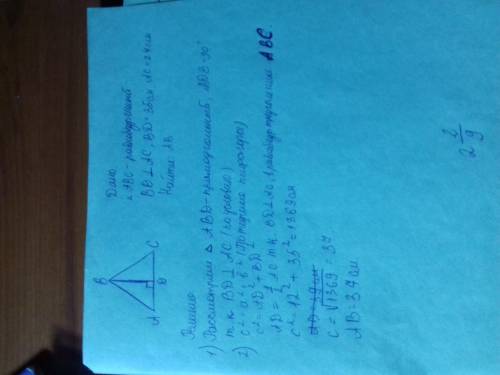 Дано
△ ABC - равнобедренный
BD ⊥ AC, BD = 35см AC = 24см
Найти: AB
B
A
D
C
Решение
1) Рассмотрим △ ABD - прямоугольный, ∠ADB = 90°
т.к. BD ⊥ AC (по условию)
2) c² = a² + b² (по теореме пифагора)
c² = AD² + BD²
AD = 1/2 AC т.к. BD ⊥ AC, в равнобедренном ABC.
c² = 12² + 35² = 1369см
c = √1369 = 37
AB = 37см